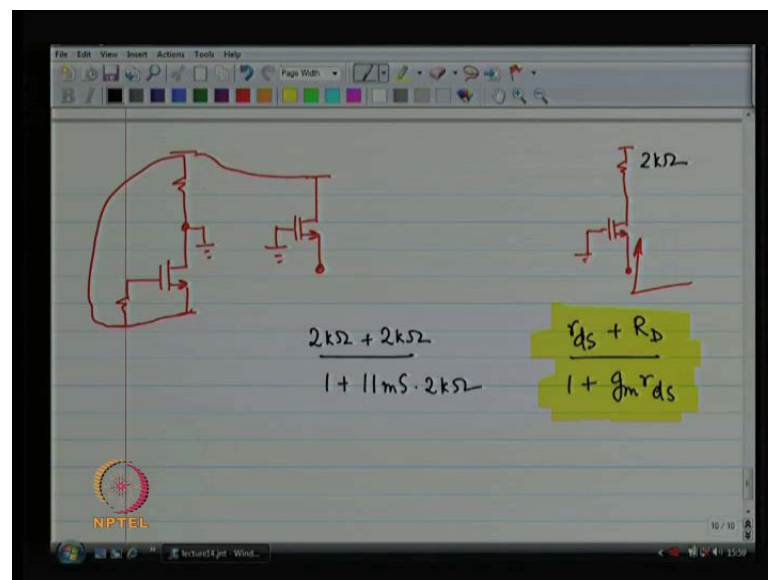 File Edit View Insert Actions Tools Help
Page Width
B I
2kΩ
2kΩ + 2kΩ
1 + 11mS · 2kΩ
r_ds + R_D
1 + g_m r_ds
NPTEL
10 / 10
lecture14.jnt - Wind...
15:59